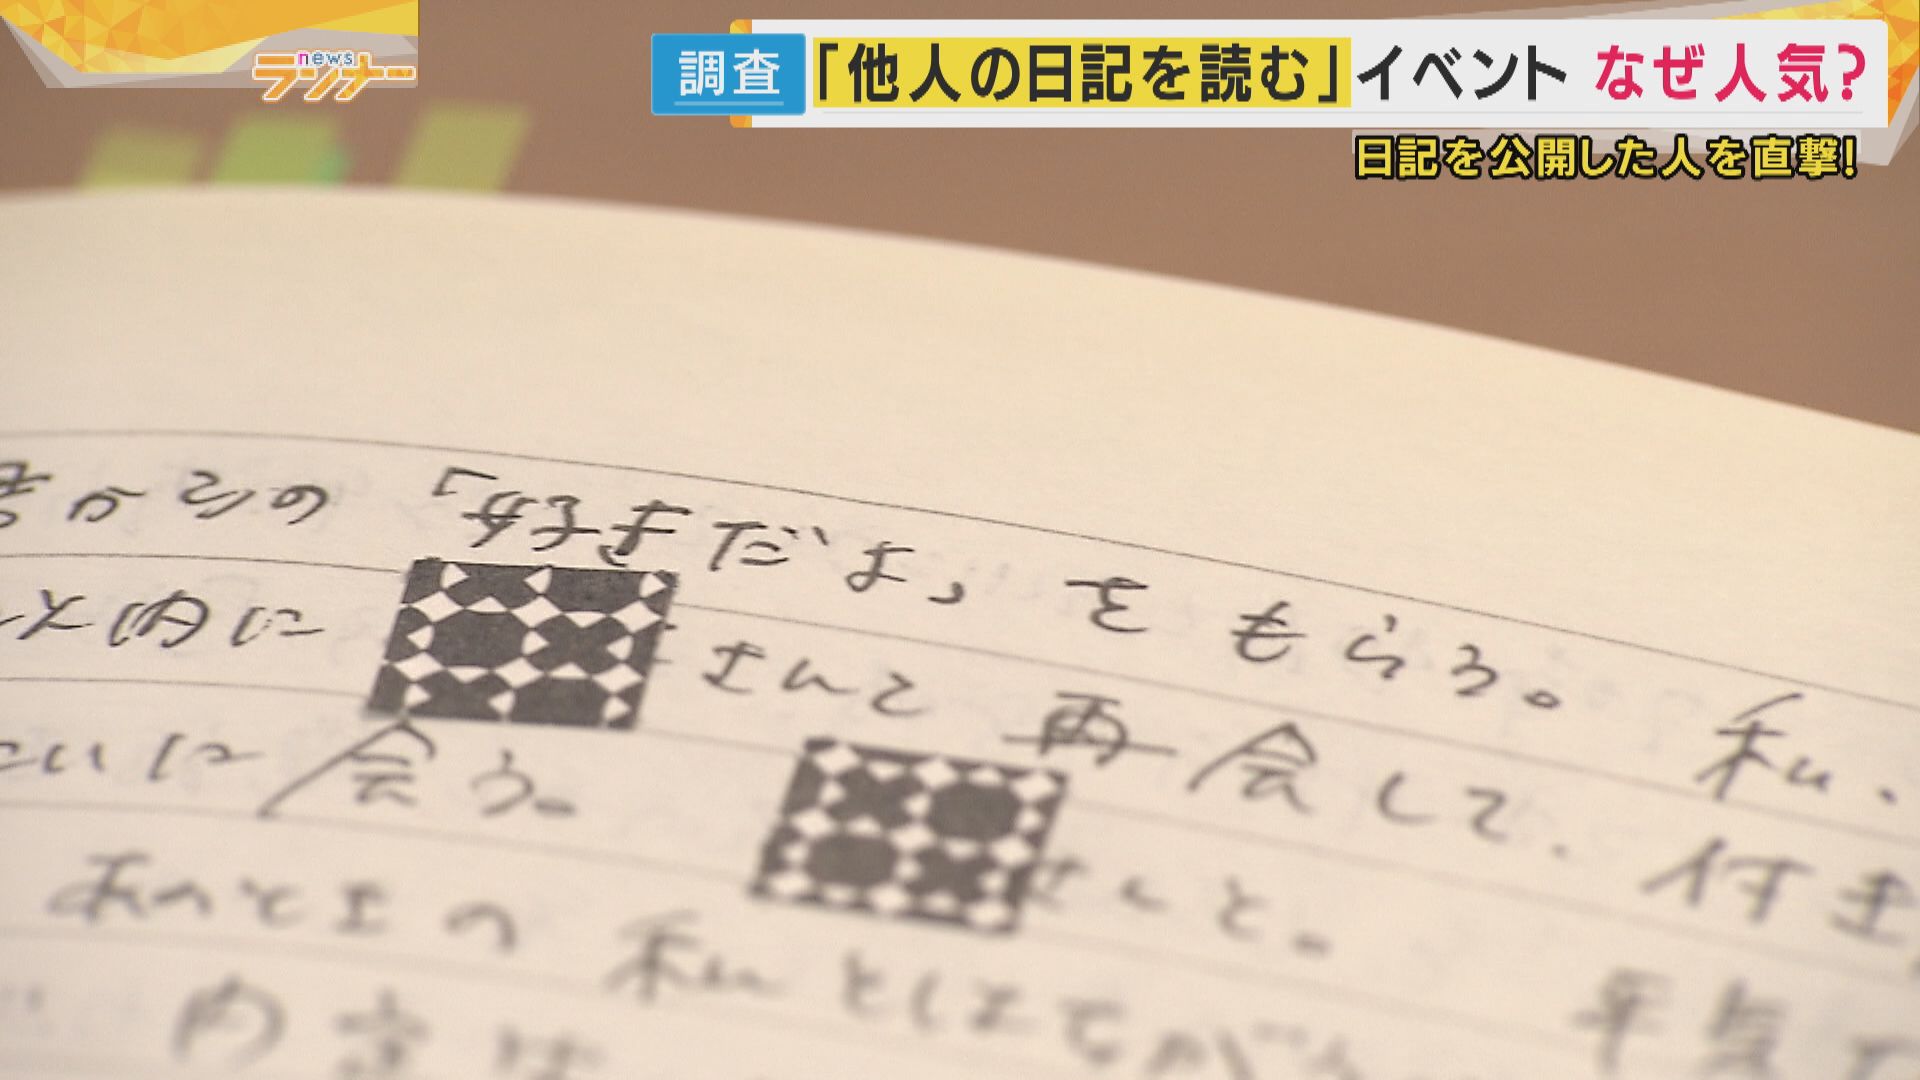 news
ランナー
調査
「他人の日記を読む」イベント なぜ人気?
日記を公開した人を直撃!
からの「好きだよ」をもらう。私、
以内に さんと再会して、付き
に会う。 さんと。
あのときの私としてもが
内定 平気で